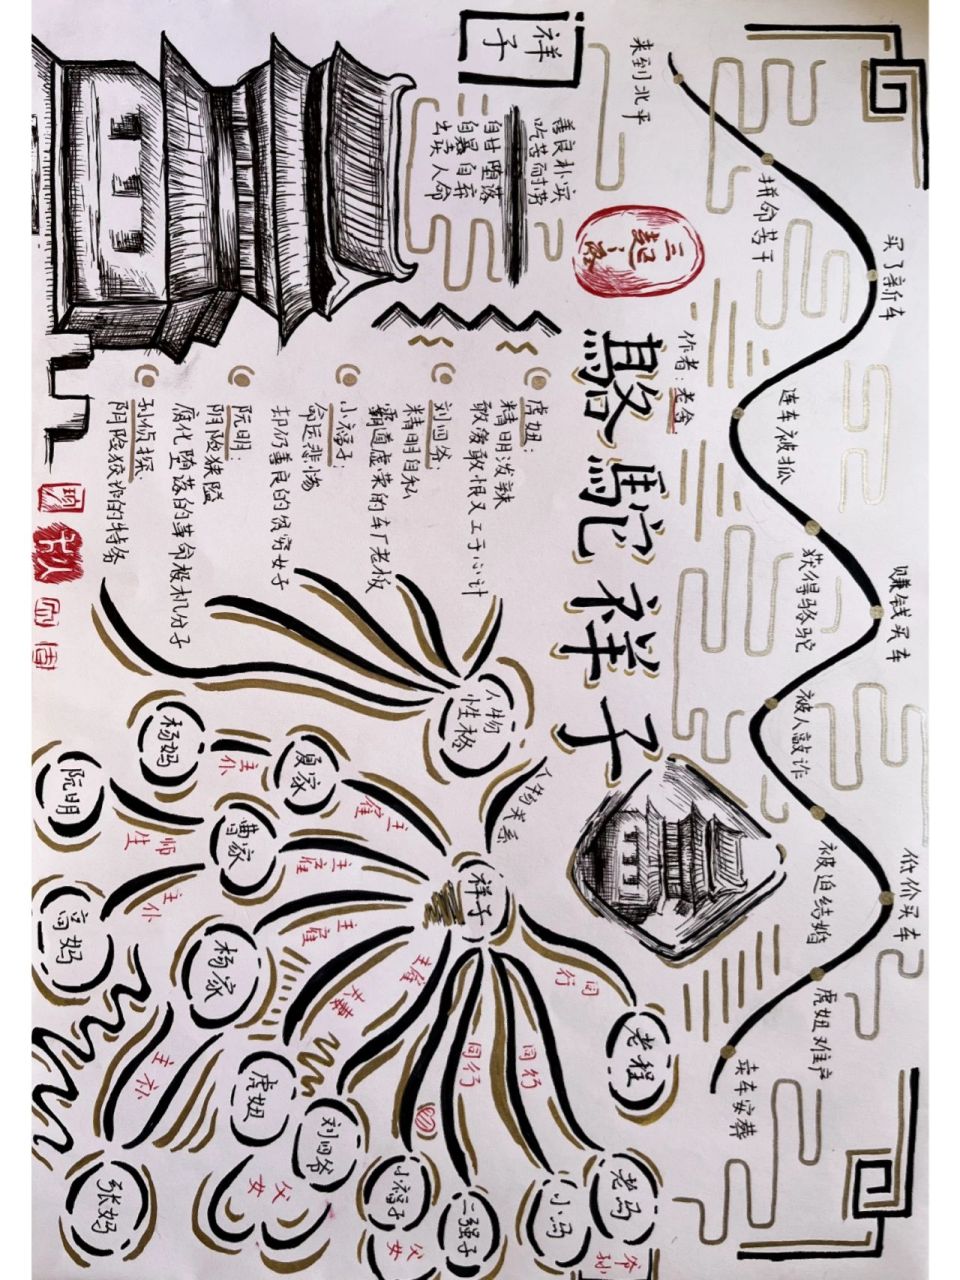 骆驼祥子
作者：老舍
三起三落
来到北平
拼命苦干
买了新车
连车被抓
获得骆驼
赚钱买车
被人敲诈
被迫结婚
低价买车
虎妞难产
卖车安葬
祥子
善良朴实
吃苦耐劳
自甘堕落
自暴自弃
出卖人命
虎妞：
精明泼辣
敢爱敢恨又工于心计
刘四爷：
精明自私
霸道虚荣的车厂老板
小福子：
命运悲惨
却仍善良的贫穷女子
阮明：
阴险狭隘
腐化堕落的革命投机分子
孙侦探：
阴险狡诈的特务
人物
性格
人物关系
祥子
同行
老程
同行
老马
小马
爷孙
同行
二强子
小福子
父女
刘四爷
虎妞
父女
夫妻
主雇
杨家
主雇
主仆
张妈
曹家
主雇
主仆
高妈
师生
阮明
夏家
主雇
主仆
杨妈